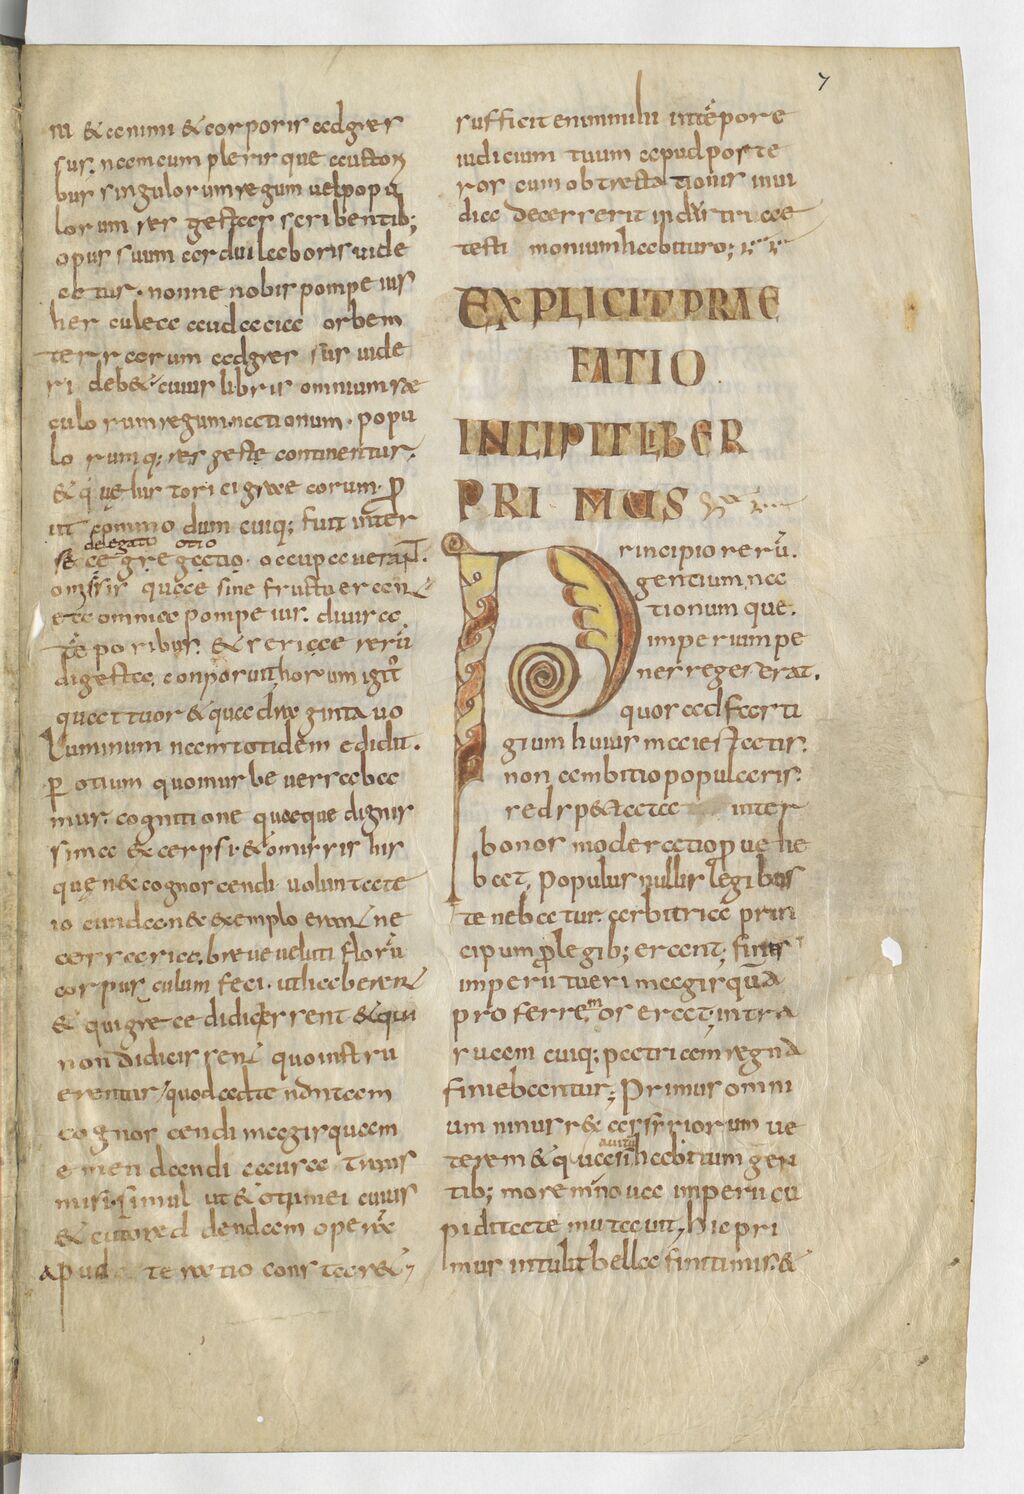 7
ni & animi & corporis adgres
sus. nam cum plerisque auctori
bus singulorum regum uel popu
lorum res gestas scribentib;
opus suum ardui laboris uide
atur. nonne nobis pompeius
herculea audacia orbem
terrarum adgressus uide
ri deb& cuius libris omnium sae
culorum regum nationum. popu
lorumq; res gestę continentur.
& quę historici gręcorum. ꝑ
ut commodum cuiq; fuit inter
delegati otio
se gregatio. occupauerant
omissis quae sine fructu erant
ea omnia pompeius. diuisa
tēporibus. & serie rerū
digesta conposuit horum igit̄
quattuor & quadraginta uo
luminum nam totidem edidit.
ꝑ otium quo in urbe uersaba
mur. cognitione quaeque dignis
sima excerpsi. & omissis his
quę nec cognoscendi uoluntate
ne
cessaria. breue ueluti florū
corpusculum feci. ut haberent
& qui gręce didicissent & qui
non didicissent quo instru
erentur quod ad te non tam
cognoscendi magis quam
emendandi causa trans
misi. simul ut & otii mei cuius
& cato reddendam operam
apud te ratio constaret
sufficit enim mihi in tēpore
iudicium tuum apud poste
ros cum obtrectationis inui
dia decesserit industriae
testimonium habituro;
EXPLICIT PRAE
FATIO
INCIPIT LIBER
PRIMUS
Principio rerū.
gentium na
tionum que.
imperium pe
nes reges erat.
quos ad fasti
gium huius maiestatis.
non ambitio popularis.
sed spectata inter
bonos moderatio ꝓuehe
bat. populus nullis legibus
tenebatur. arbitria prin
cipum ꝓ legib; erant; fines
imperii tueri magis quā
proferre mos erat; intra
suam cuiq; patriam regna
finiebantur; Primus omni
um ninus rex assyriorum ue
auitū
terem & quasi habitum gen
tib; morem noua imperii cu
piditate mutauit, hic pri
mus intulit bella finitimis. &